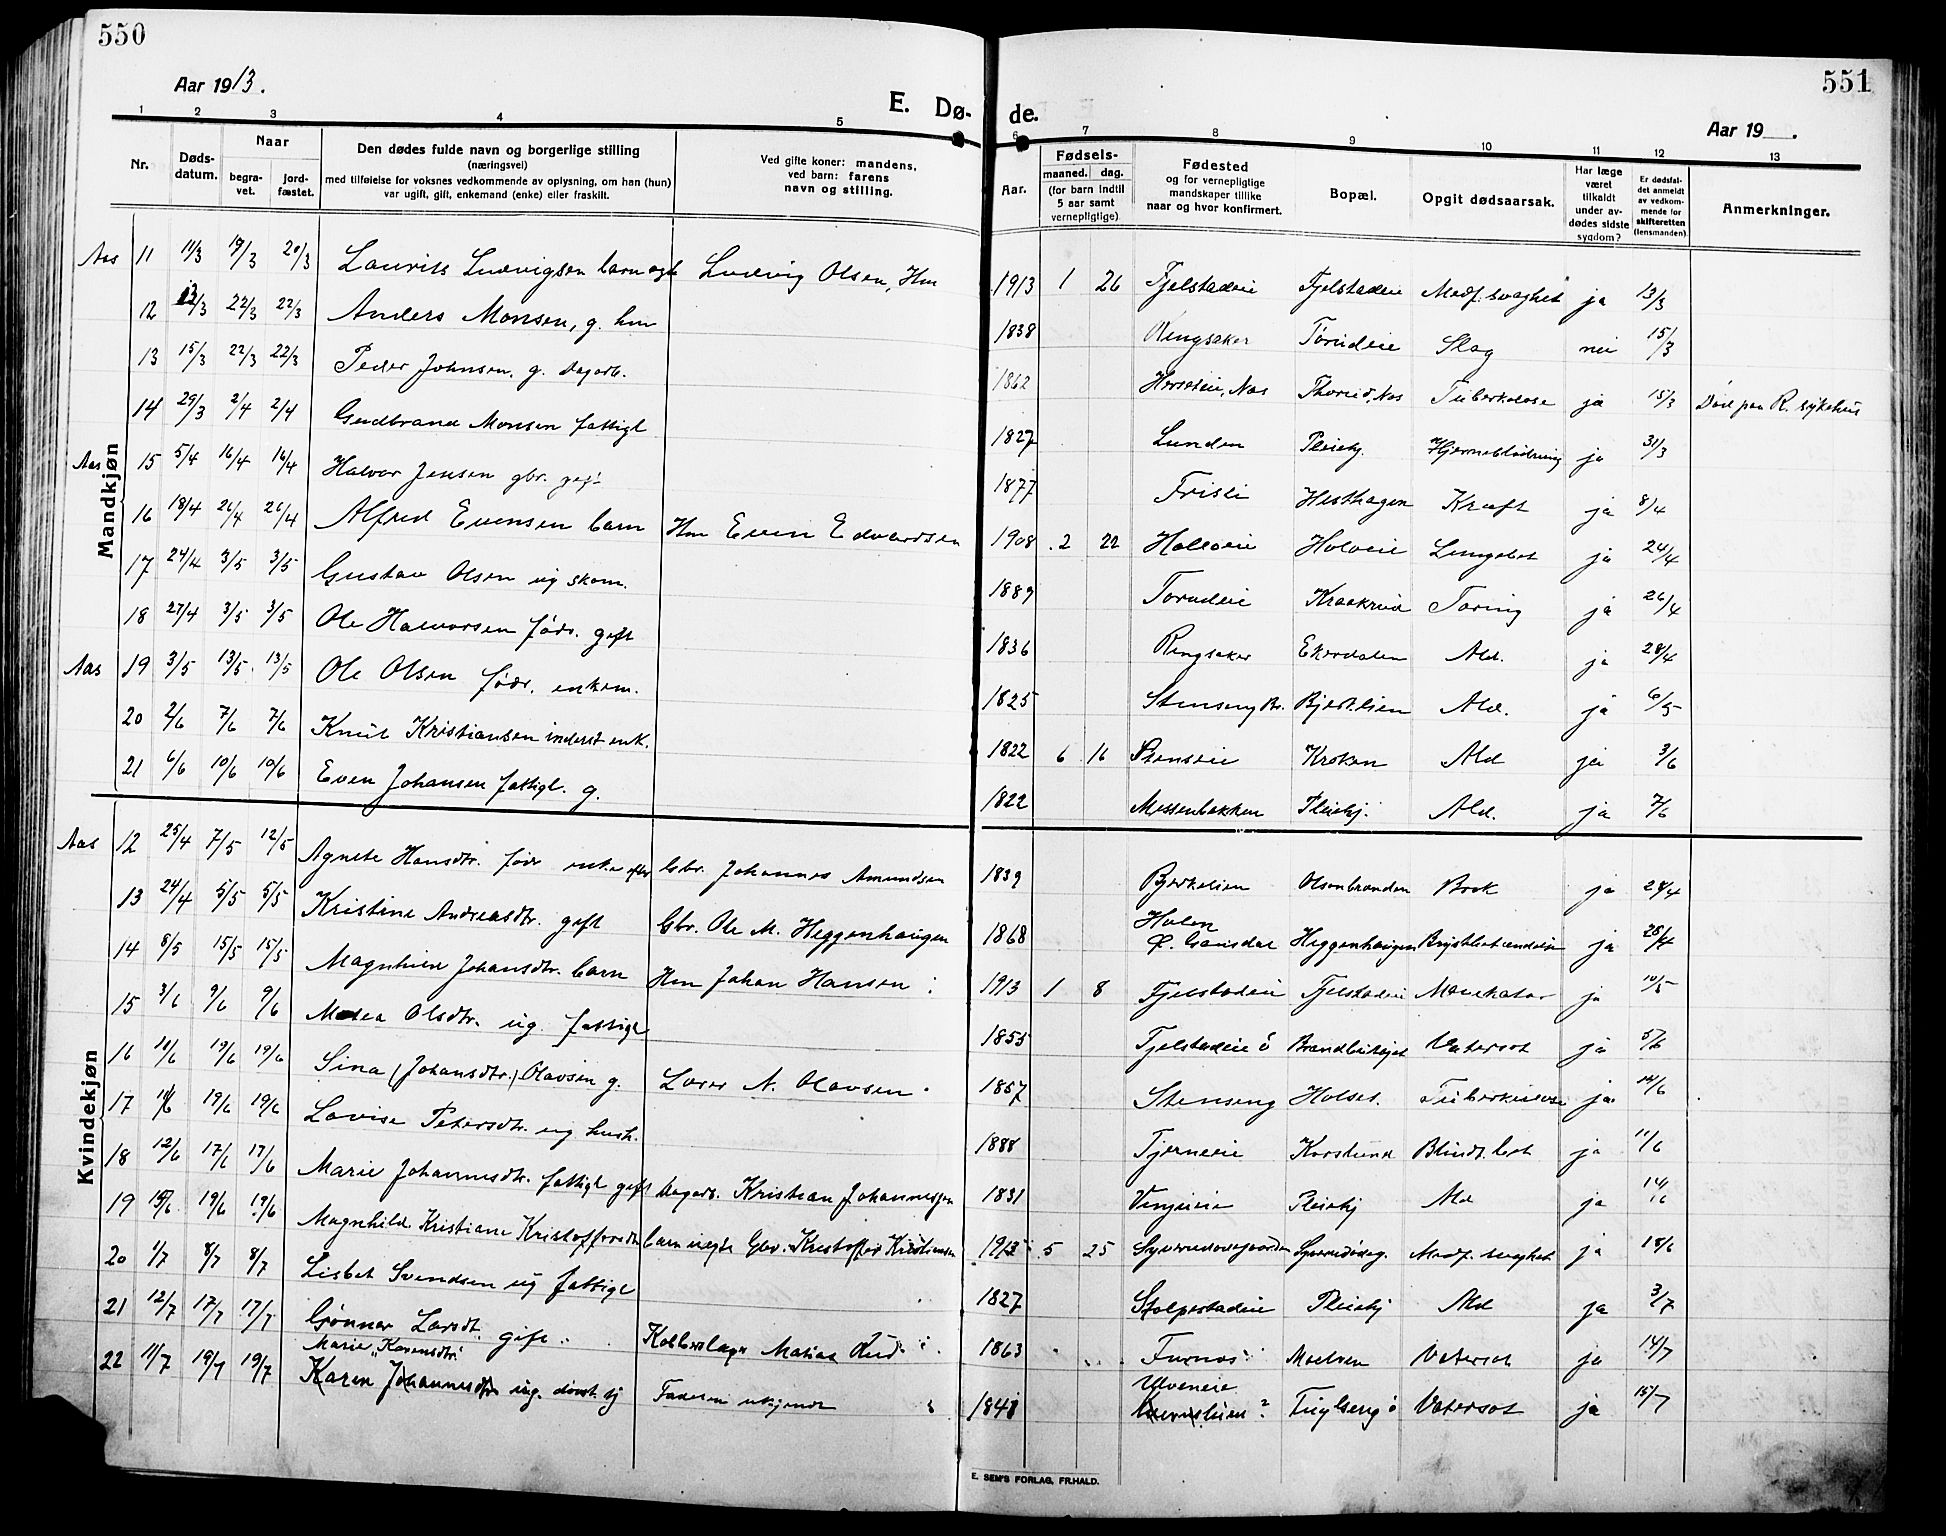 550
551
Aar 1913.
E. Dø-
de.
Aar 19 .
1 2 3 4 5 6 7 8 9 10 11 12 13
Nr.
Døds-
datum.
Naar
begra-
vet.
jord-
fæstet.
Den dødes fulde navn og borgerlige stilling
(næringsvei)
med tilføielse for voksnes vedkommende av oplysning, om han (hun)
var ugift, gift, enkemand (enke) eller fraskilt.
Ved gifte koner: mandens,
ved barn: farens
navn og stilling.
Aar.
Fødsels-
maaned. dag.
(for barn indtil
5 aar samt
vernepligtige)
Fødested
og for vernepligtige
mandskaper tillike
naar og hvor konfirmert.
Bopæl.
Opgit dødsaarsak.
Har læge
været
tilkaldt
under av-
dødes sidste
sygdom?
Er dødsfal-
det anmeldt
av vedkom-
mende for
skifteretten
(lensmanden).
Anmerkninger.
Mandkjøn
Aas 11 11/3 19/3 20/3 Laurits Ludvigsen barn egte Ludvig Olsen, Hm 1913 1 26 Fjelstadeie Fjelstadeie Medf. svaghet ja 13/3
12 22/3 22/3 Anders Monsen, g. hm 1838 Ringsaker Torudeie Slag nei 15/3
13 15/3 22/3 22/3 Peder Johnsen. g. dagarb. 1862 Nes Thorud, Nes Tuberkulose ja 15/3 Død paa R. sykehus
14 29/3 2/4 2/4 Gudbrand Monsen fattigl 1827 Lunden Pleiehj. Hjerneblødning ja 31/3
Aas 15 5/4 16/4 16/4 Halvor Jensen gbr. gift 1877 Frisli Hesthagen Kræft ja 8/4
16 18/4 26/4 26/4 Alfred Evensen barn Hm Even Edvardsen 1908 2 22 Holveie Holveie Lungebet ja 24/4
17 24/4 3/5 3/5 Gustav Olsen ug skom. 1889 Torudeie Kraakrud Tæring ja 26/4
18 27/4 3/5 3/5 Ole Halvorsen føдr. gift 1836 Ringsaker Ekerdalen Ald. ja 28/4
Aas 19 3/5 13/5 13/5 Ole Olsen føдr. enkem. 1825 Stenseng Br. Bjerkelien Ald. ja 6/5
20 2/6 7/6 7/6 Knut Kristiansen inderst enk. 1822 6 16 Stenseie Kroken Ald ja 3/6
21 6/6 10/6 10/6 Even Johansen fattigl. g. 1822 Messenbakken Pleiehj. Ald. ja 7/6
Kvindekjøn
Aas 12 25/4 7/5 12/5 Agnete Hansdtr. føдr enke efter Gbr. Johannes Amundsen 1839 Bjerkelien Olsenbranden Brok ja 28/4
13 24/4 5/5 5/5 Kristine Andreasdtr. gift Gbr. Ole M. Heggenhaugen 1868 Holen Ø. Gausdal Heggenhaugen ja 28/4
14 8/5 15/5 15/5 Magnhild Johansdtr. barn Hm Johan Hansen 1913 1 8 Fjelstadeie Fjelstadeie Mavekatar ja 10/5
15 3/6 9/6 9/6 Mathea Olsdtr. ug. fattigl 1855 Fjelstadeie Vatersot ja 5/6
16 19/6 19/6 Sina (Johansdtr.) Olavsen g. Lærer N. Olavsen 1857 Stenseng Holset. Tuberkulose ja 14/6
17 19/6 19/6 Lovise Petersdtr. ug hush. 1888 Tjerneie Korslund Blindt.bet ja 11/6
18 12/6 17/6 17/6 Marie Johannesdtr. fattigl gift Dagarb. Kristian Johannessen 1831 Venjueie Pleiehj Ald ja 14/6
19 19/6 19/6 Magnhild Kristiane Kristoffersdtr barn uegte Gbr. Kristoffer Kristiansen 1913 5 25 Medf. svaghet ja 18/6
20 1/7 8/7 8/7 Lisbet Svendsen ug fattigl 1827 Stolpestadeie Pleiehj Ald ja 3/7
21 12/7 17/7 17/7 Gønner Larsdt. gift Kobberslager Matias Rud 1863 Furnes Moelven Vatersot ja 14/7
Marie "Karensdtr."
22 11/7 19/7 19/7 Karen Johannesdtr ug. Faderen ukjendt 1841 Ulveneie Vatersot ja 15/7
E. SEM'S FORLAG, FR.HALD.